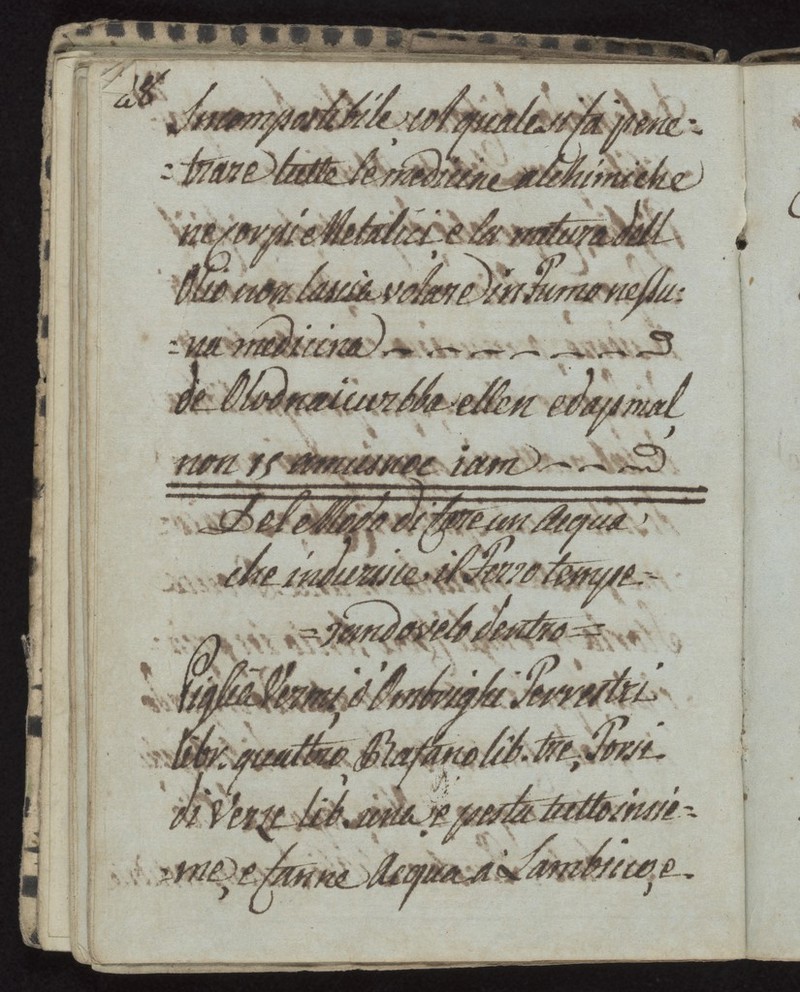 28
Incompostibile, col quale si fà pene=
=trare tutte le medicine alchimiche
ne corpi Metalici e la natura dell
Olio non lascia volare in Fumo nessu=
=na medicina
de ellen edapmal
non 15 iam
Del Modo di fare un Acqua,
che indurisce il Ferro tempe=
=randovelo dentro=
Piglia Vermi, ò Ombrighi Terrestri
libr. quattro, Rafano lib. tre, Torsi
di Verze lib. una, e pesta tutto insie=
=me, e fanne Acqua à Lambicco, e